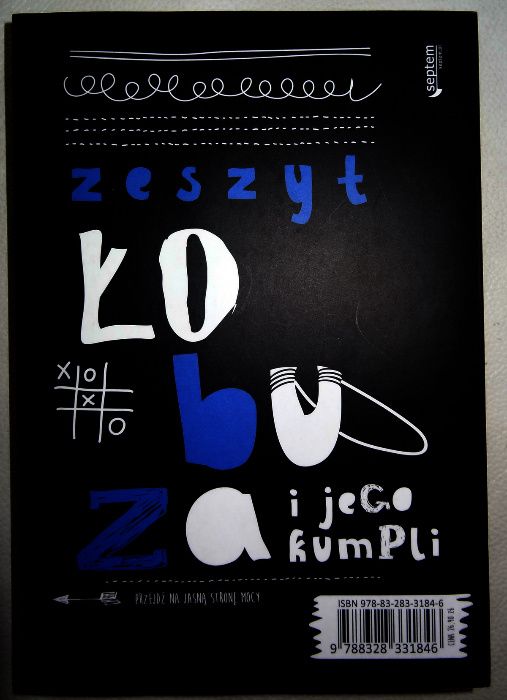 septem
zeszyt
ŁO
bu
za
i jeGo
kumpli
X O
X
O
PRZEJDŹ NA JASNĄ STRONĘ MOCY
ISBN 978-83-283-3184-6
9 788328 331846